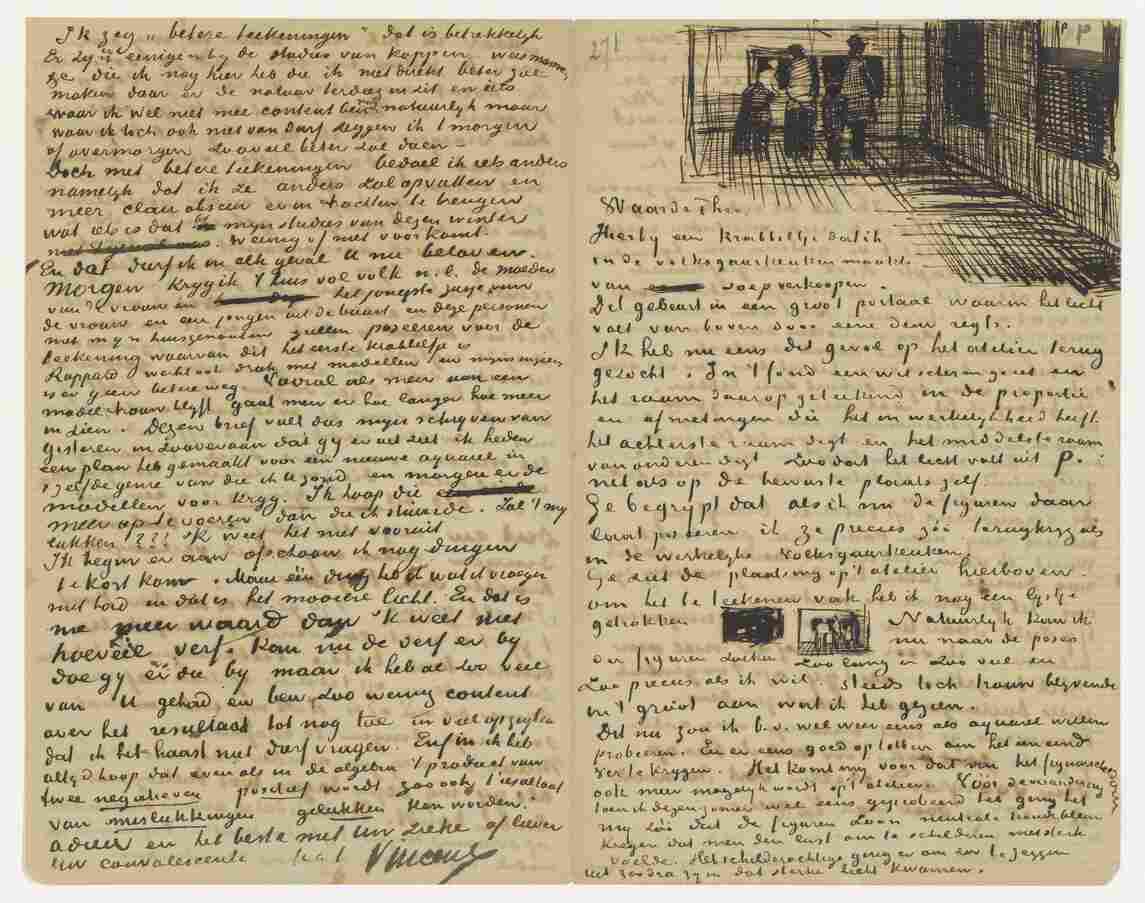 Ik zeg „betere teekeningen” dat is betrekkelijk
Er zijn eenigen bij de studies van koppen, waarmee
ge die ik nog hier heb die ik niet direkt beter zal
maken daar er de natuur terdeeg in zit en iets
waar ik wel niet mee content ben natuurlijk maar
waar ik toch ook niet van durf zeggen ik 't morgen
of overmorgen zooveel beter zal doen –
Doch met betere teekeningen bedoel ik iets anders
namelijk dat ik ze anders zal opvatten en
meer clair obscur er in trachten te brengen
wat iets is dat in mijn studies van dezen winter
weinig of niet voorkomt.
En dat durf ik in elk geval U nu beloven.
Morgen krijg ik 't huis vol volk n.l. de moeder
van de vrouw en het jongste zusje van
de vrouw en een jongen uit de buurt en deze personen
met mijn huisgenooten zullen poseeren voor de
teekening waarvan dit het eerste krabbeltje is
Rappard werkt ook druk met modellen en mijns inziens
is er geen betere weg. Vooral als men aan een
model trouw blijft gaat men er hoe langer hoe meer
in zien. Dezen brief vult dus mijn schrijven van
gisteren in zooverre aan dat gij er uit ziet ik heden
een plan heb gemaakt voor een nieuwe aquarel in
't zelfde genre van die ik U zond en morgen er de
modellen voor krijg. Ik hoop die
meer op te voeren dan die ik stuurde. Zal 't mij
lukken???! 'k weet het niet vooruit
Ik begin er aan ofschoon ik nog dingen
te kort kom. Maar één ding had ik wat ik vroeger
niet had en dat is het mooiere licht. En dat is
me meer waard dan 'k weet niet
hoevéél verf. Kan nu de verf er bij
doe gij er die bij maar ik heb al zoo veel
van U gehad en ben zoo weinig content
over het resultaat tot nog toe in veel opzigten
dat ik het haast niet durf vragen. Enfin ik heb
altijd hoop dat even als in de algebra 't product van
twee negatieven positief wordt zoo ook 't resultaat
van mislukkingen gelukken kan worden.
adieu en het beste met Uw zieke of liever
Uw convalescente t.à t. Vincent
271
Waarde Theo
Hierbij een krabbeltje dat ik
in de volksgaarkeuken maakte
van soep verkoopen.
Dit gebeurt in een groot portaal waarin het licht
valt van boven door eene deur regts.
Ik heb nu eens dit geval op het atelier terug
gezocht. In 't fond een wit scherm gezet en
het raam daar op geteekend in de proportie
en afmetingen die het in werkelijkheid heeft
het achterste raam digt en het middelste raam
van onderen digt Zoo dat het licht valt uit P.
net als op de bewuste plaats zelf.
Ge begrijpt dat als ik nu de figuren daar
laat poseren ik ze precies zóó terugkrijg als
in de werkelijke volksgaarkeuken.
Ge ziet de plaatsing op 't atelier hierboven.
om het te teekenen vak heb ik nog een lijstje
getrokken Natuurlijk kan ik
nu naar de poses
der figuren zoeken Zoo lang en zoo veel en
Zoo precies als ik wil. steeds toch trouw blijvende
in 't groot aan wat ik heb gezien.
Dit nu zou ik b.v. wel weer eens als aquarel willen
probeeren. En er eens goed op letten om het een eind
ver te krijgen. Het komt mij voor dat van het figuurschilderen
ook meer mogelijk wordt op 't atelier. Vóór de verandering
toen ik dezen zomer wel eens geprobeerd heb ging het
mij zóó dat de figuren zoon neutrale
kregen dat men den lust om te schilderen niet sterk
voelde. Het schilderachtige ging er om zoo te zeggen
uit zoodra zij in dat sterke licht kwamen.